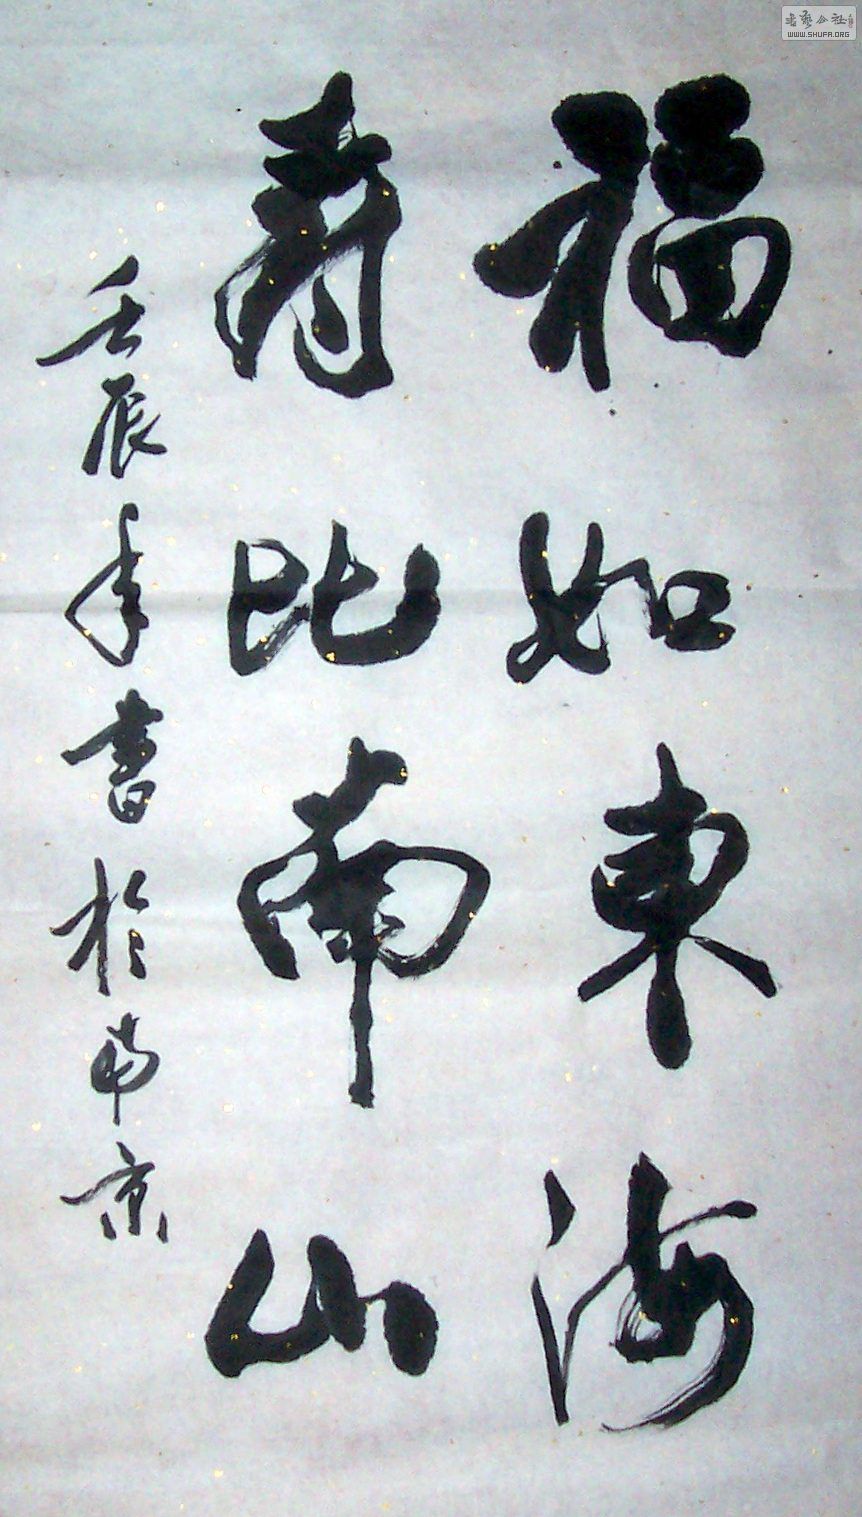 福如東海
寿比南山
壬辰年書於南京
书艺公社
WWW.SHUFA.ORG